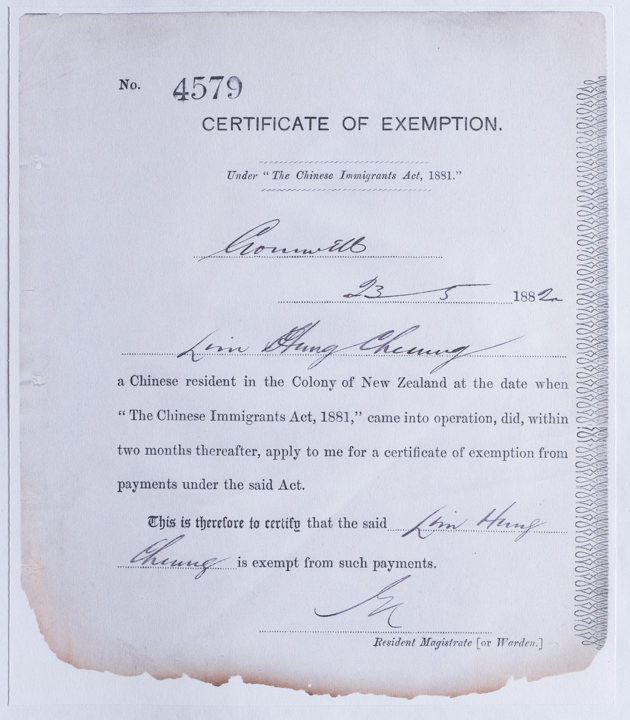 No. 4579
CERTIFICATE OF EXEMPTION.
Under "The Chinese Immigrants Act, 1881."
Cromwell
23 5 1882
Lim Hung Cheung
a Chinese resident in the Colony of New Zealand at the date when
"The Chinese Immigrants Act, 1881," came into operation, did, within
two months thereafter, apply to me for a certificate of exemption from
payments under the said Act.
This is therefore to certify that the said Lim Hung
Cheung is exempt from such payments.
Resident Magistrate [or Warden.]